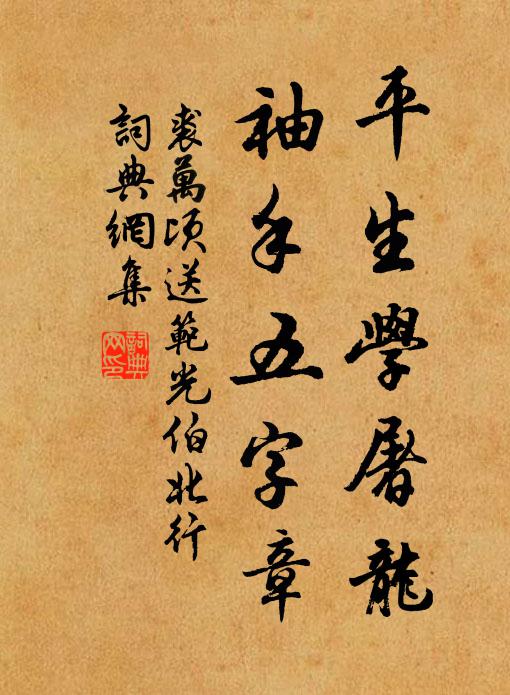 平生學屠龍
袖手五字章
裘萬頃送範光伯北行
詞典網集
詞典網印